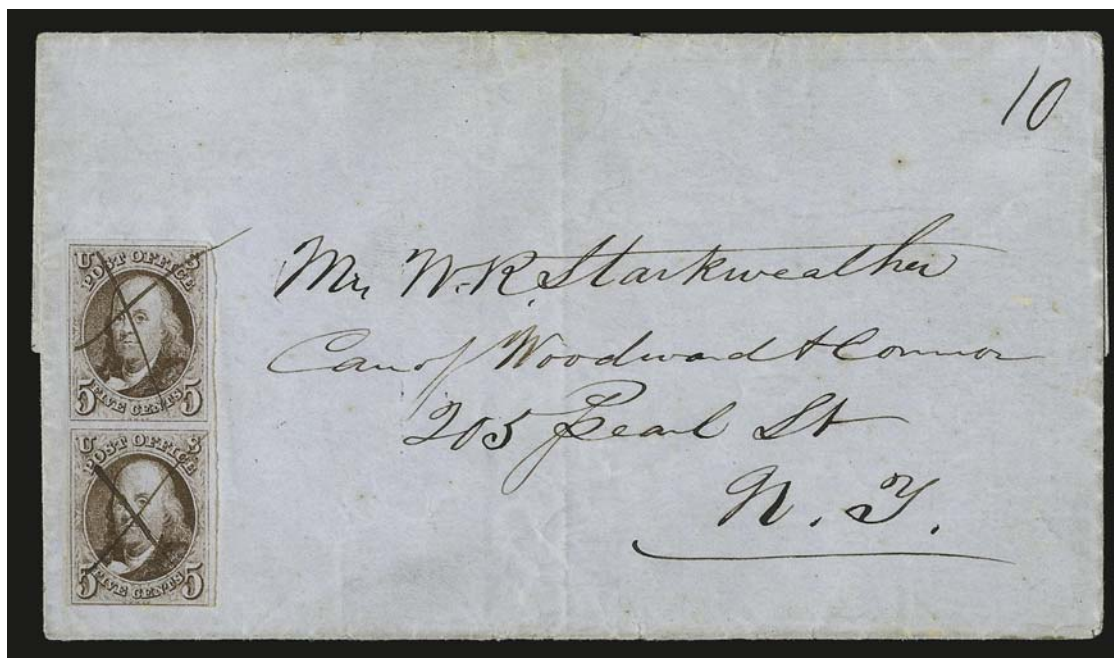 10
U S
POST OFFICE
5 FIVE CENTS 5
U S
POST OFFICE
5 FIVE CENTS 5
Mr. W. R. Starkweather
Care of Woodward & Connor
205 Pearl St
N. Y.